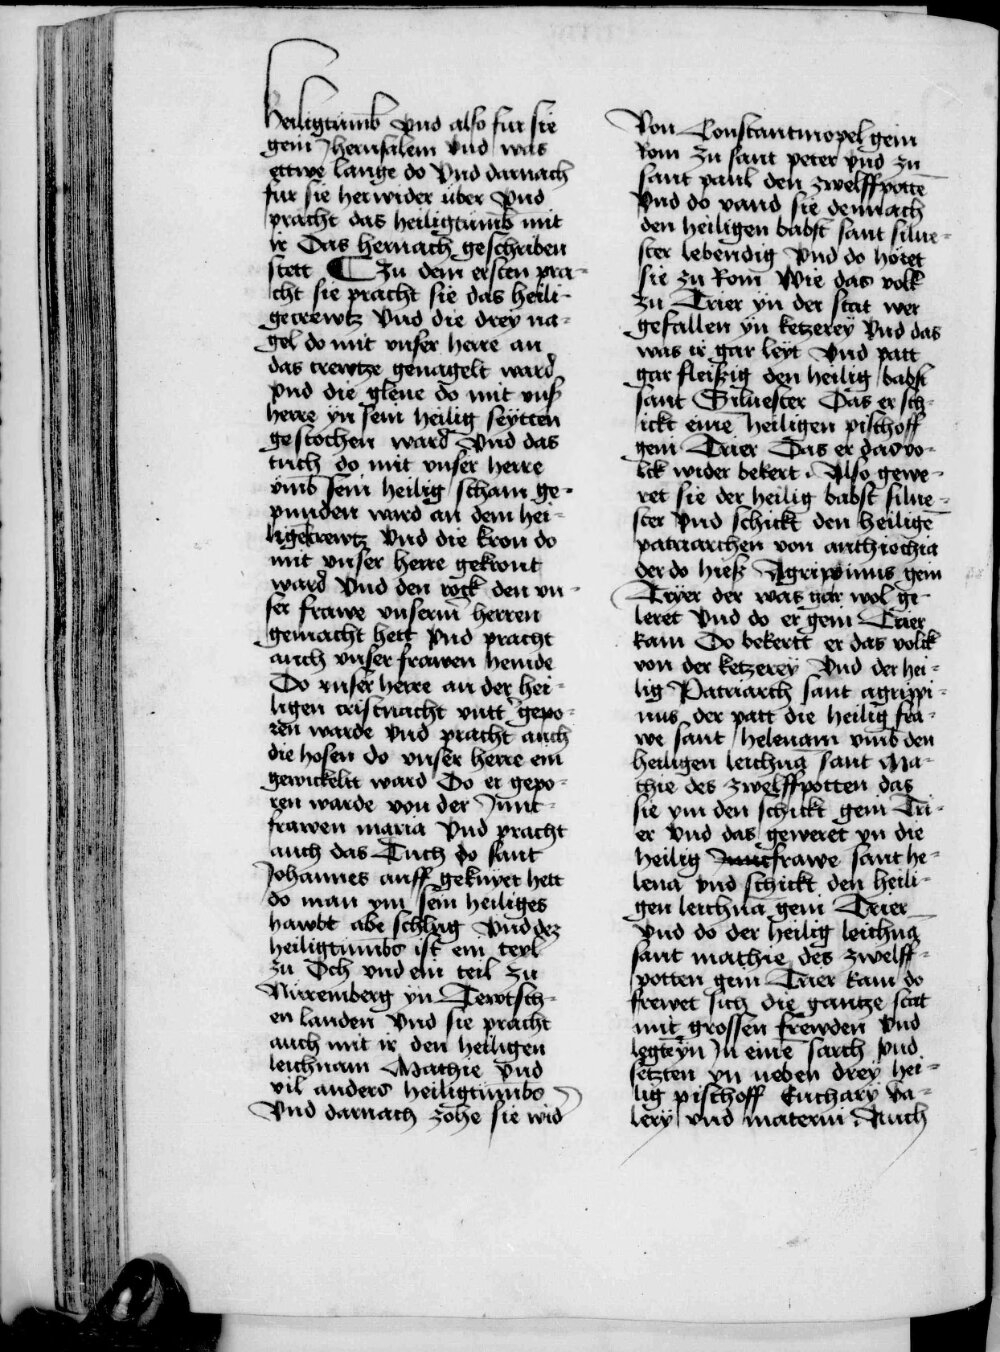 Heiligtumb Vnd also fur sie
gein Jherusalem Vnd was
ettwe lange do Vnd darnach
fur sie herwider uber Vnd
pracht das heiligtumb mit
ir Das hernach geschriben
stett ¶ Zu dem ersten pra-
cht sie pracht sie das heili-
ge crewtz Vnd die drey na-
gel do mit vnser herre an
das crewtze genagelt ward
Vnd die glene do mit vnser
herre yn sein heilig seytten
gestochen ward Vnd das
tuch do mit vnser herre
vmb sein heilig scham ge-
punden ward an dem hei-
lige crewtz Vnd die kron do
mit vnser herre gekront
ward Vnd den rock den vn-
ser frawe vnserm herren
gemacht hett Vnd pracht
auch vnser frawen hemde
Do vnser herre an der hei-
ligen cristnacht ynn gepo-
ren warde Vnd pracht auch
die hosen do vnser herre ein
gewickelt ward Do er gepo-
ren warde von der Junc-
frawen maria Vnd pracht
auch das Tuch do sant
Johannes auff geknyet hett
do man ym sein heiliges
hawbt abe schlug Vnd dez
heiligtumbs ist ein teyl
zu Och vnd ein teil zu
Nuremberg yn Tewtsch-
en landen Vnd sie pracht
auch mit ir den heiligen
leichnam Mathie Vnd
vil anders heiligtumbs
Vnd darnach zohe sie wid
Von Constantinopel gein
Rom zu sant peter vnd zu
sant paul den zwelffpotte
Vnd do vand sie dennach
den heiligen babst sant silue-
ster lebendig Vnd do horet
sie zu Rom Wie das volk
zu Trier yn der stat wer
gefallen yn ketzerey Vnd das
was ir gar leyt Vnd patt
gar fleißig den heilig babst
sant Siluester Das er sch-
ickt eine heiligen pischoff
gein Trier Das er das vo-
lck wider bekert. Also gewe-
ret sie der heilig babst silue-
ster Vnd schickt den heilige
patriarchen von anthiochia
der do hieß Agrippinus gein
Tryer der was gar wol ge-
leret Vnd do er gein Trier
kam Do bekertt er das volck
von der ketzerey Vnd der hei-
lig Patriarch sant agrippi-
nus der patt die heilig fra-
we sant helenam vmb den
heiligen leichna sant Ma-
thie des zwelffpotten das
sie ym den schickt gein Tri-
er Vnd das geweret yn die
heilig Juncfrawe sant he-
lena vnd schickt den heili-
gen leichna gein Trier
Vnd do der heilig leichna
sant mathie des zwelff-
potten gein Trier kam do
frewet sich die gantze stat
mit grossen frewden Vnd
legte yn in eine sarch vnd
setzten yn neben drey hei-
lig pischoff Euchary Va-
lery vnd materni. Auch